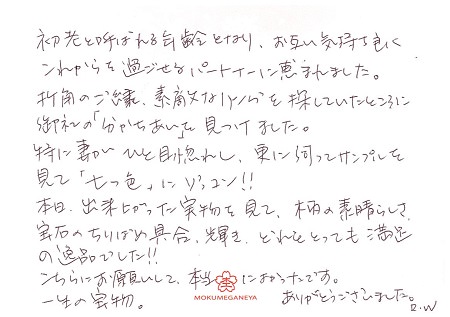 初老と呼ばれる年齢となり、お互い気持ち良く
これからを過ごせるパートナーに恵まれました。
折角のご縁、素敵なリングを探していたところに
御社の「分かちあい」を見つけました。
特に妻がひと目惚れし、更に伺ってサンプルを
見て「七つ色」にゾッコン!!
本日、出来上がった実物を見て、柄の素晴らしさ、
宝石のちりばめ具合、輝き、どれをとっても満足
の逸品でした!!
こちらにお願いして、本当によかったです。
一生の宝物。
ありがとうございました。
MOKUMEGANEYA
R.W